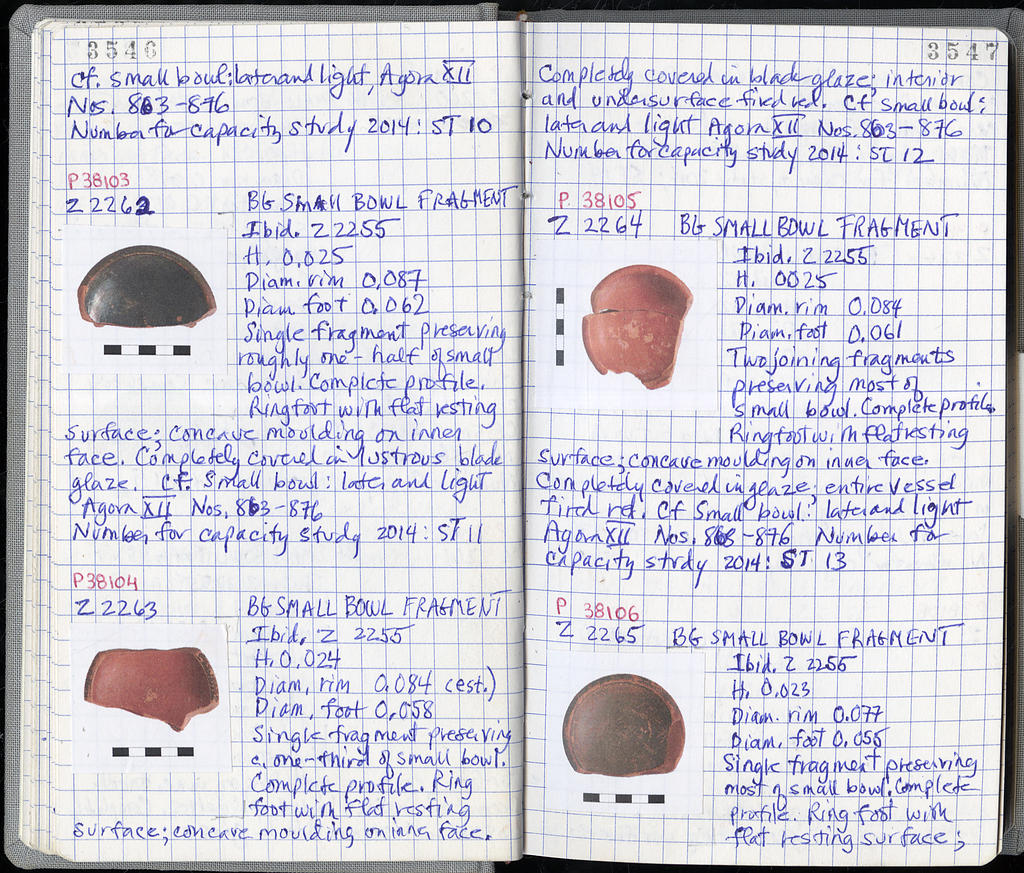 3546
Cf. small bowl: later and light, Agora XII
Nos. 863-876
Number for capacity study 2014: ST 10
P 38103
Z 2262
BG SMALL BOWL FRAGMENT
Ibid. Z 2255
H. 0.025
Diam. rim 0,087
Diam foot 0.062
Single fragment preserving
roughly one-half of small
bowl. Complete profile.
Ring foot with flat resting
surface; concave moulding on inner
face. Completely covered in lustrous black
glaze. Cf. Small bowl: later and light
Agora XII Nos. 863-876
Number for capacity study 2014: ST 11
P38104
Z 2263
BG SMALL BOWL FRAGMENT
Ibid. Z 2255
H. 0.024
Diam. rim 0.084 (est.)
Diam. foot 0,058
Single fragment preserving
c. one-third of small bowl.
Complete profile. Ring
foot with flat resting
surface; concave moulding on inner face.
3547
Completely covered in black glaze; interior
and undersurface fired red. Cf small bowl:
later and light Agora XII Nos. 863-876
Number for capacity study 2014: ST 12
P 38105
Z 2264
BG SMALL BOWL FRAGMENT
Ibid. Z 2255
H. 0025
Diam. rim 0.084
Diam. foot 0.061
Two joining fragments
preserving most of
small bowl. Complete profile.
Ring foot with flat resting
surface; concave moulding on inner face.
Completely covered in glaze; entire vessel
fired red. Cf Small bowl: later and light
Agora XII Nos. 863-876 Number for
capacity study 2014: ST 13
P 38106
Z 2265
BG SMALL BOWL FRAGMENT
Ibid. Z 2255
H. 0.023
Diam. rim 0.077
Diam. foot 0.055
Single fragment preserving
most of small bowl. Complete
profile. Ring foot with
flat resting surface;